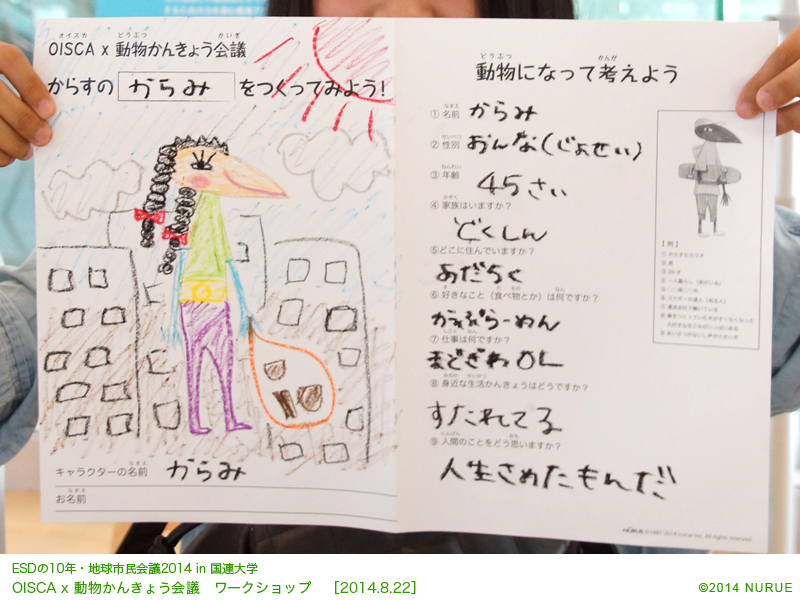 オイスカ どうぶつ かいぎ
OISCA x 動物かんきょう会議
からすの からみ をつくってみよう!
キャラクターの名前 からみ
なまえ
お名前
どうぶつ かんが
動物になって考えよう
なまえ
① 名前 からみ
せいべつ
② 性別 おんな(じょせい)
ねんれい
③ 年齢 45さい
かぞく
④ 家族はいますか?
どくしん
⑤どこに住んでいますか?
あだちく
⑥ 好きなこと(食べ物とか)は何ですか?
かっぷらーめん
⑦ 仕事は何ですか?
まどぎわOL
⑧ 身近な生活かんきょうはどうですか?
すたれてる
にんげん
⑨ 人間のことをどう思いますか?
人生さめたもんだ
【例】
ESDの10年・地球市民会議2014 in 国連大学
OISCA x 動物かんきょう会議 ワークショップ [2014.8.22]
©2014 NURUE